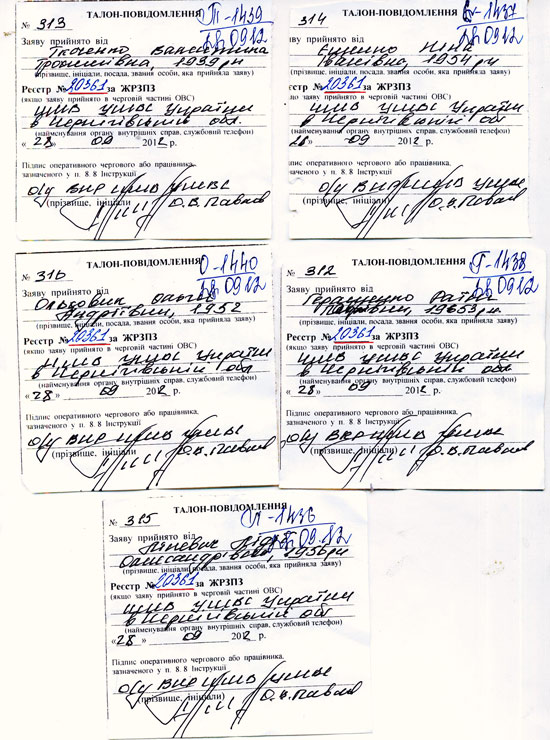 № 313 ТАЛОН-ПОВІДОМЛЕННЯ Т-1439
Заяву прийнято від 28.09.12
Ткаченко Валентина
1939 рн
(прізвище, ініціали, посада, звання особи, яка прийняла заяву)
Реєстр № 20361 за ЖРЗПЗ
(якщо заяву прийнято в черговій частині ОВС)
ЦМВ УМВС України
в Чернігівській обл.
(найменування органу внутрішніх справ, службовий телефон)
« 28 » 09 2012 р.
Підпис оперативного чергового або працівника,
зазначеного у п. 8.8 Інструкції
о/у ВКР ЦМВ УМВС
(прізвище, ініціали) О.В. Павлов
314 ТАЛОН-ПОВІДОМЛЕННЯ 1437
Заяву прийнято від 28.09.12
Ніна
Іванівна, 1954 рн
(прізвище, ініціали, посада, звання особи, яка прийняла заяву)
Реєстр № 20361 за ЖРЗПЗ
(якщо заяву прийнято в черговій частині ОВС)
ЦМВ УМВС України
в Чернігівській обл
(найменування органу внутрішніх справ, службовий телефон)
28 » 09 2012 р.
Підпис оперативного чергового або працівника,
зазначеного у п. 8.8 Інструкції
о/у ВКР ЦМВ УМВС
(прізвище, ініціали О.В. Павлов
№ 316 ТАЛОН-ПОВІДОМЛЕННЯ О-1440
Заяву прийнято від 28.09.12
Ольга
Андріївн, 1952
(прізвище, ініціали, посада, звання особи, яка прийняла заяву)
Реєстр № 20361 за ЖРЗПЗ
(якщо заяву прийнято в черговій частині ОВС)
ЦМВ УМВС України
в Чернігівській обл
(найменування органу внутрішніх справ, службовий телефон)
« 28 » 09 2012 р.
Підпис оперативного чергового або працівника,
зазначеного у п. 8.8 Інструкції
о/у ВКР ЦМВ УМВС
(прізвище, ініціали О.В. Павлов
№ 312 ТАЛОН-ПОВІДОМЛЕННЯ Г-1438
Заяву прийнято від 28.09.12
Геращенко
(прізвище, ініціали, посада, звання особи, яка прийняла заяву)
Реєстр № 20361 за ЖРЗПЗ
(якщо заяву прийнято в черговій частині ОВС)
ЦМВ УМВС України
в Чернігівській обл
(найменування органу внутрішніх справ, службовий телефон)
« 28 » 09 2012 р.
Підпис оперативного чергового або працівника,
зазначеного у п. 8.8 Інструкції
о/у ВКР ЦМВ УМВС
(прізвище, ініціали) О.В. Павлов
№ 315 ТАЛОН-ПОВІДОМЛЕННЯ 1436
Заяву прийнято від 28.09.12
Лідія
Олександрівна, 1956 рн
(прізвище, ініціали, посада, звання особи, яка прийняла заяву)
Реєстр № 20361 за ЖРЗПЗ
(якщо заяву прийнято в черговій частині ОВС)
ЦМВ УМВС України
в Чернігівській обл
(найменування органу внутрішніх справ, службовий телефон)
« 28 » 09 2012 р.
Підпис оперативного чергового або працівника,
зазначеного у п. 8.8 Інструкції
о/у ВКР ЦМВ УМВС
(прізвище, ініціали) О.В. Павлов